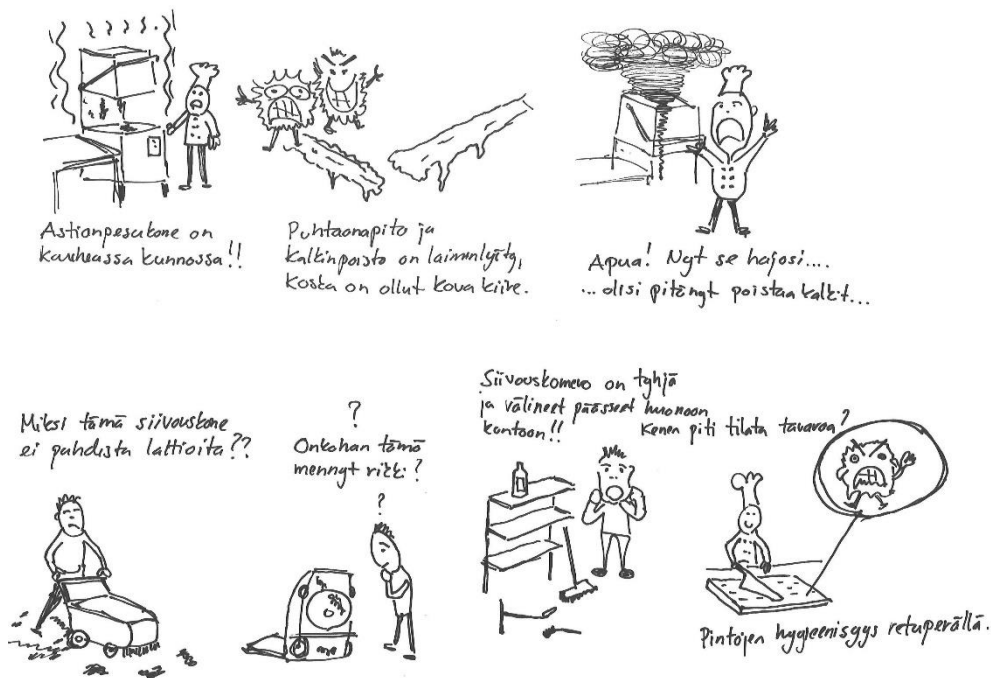 Astianpesukone on
kauheassa kunnossa!!
Puhtaanapito ja
kalkinpoisto on laiminlyöty,
koska on ollut kova kiire.
Apua! Nyt se hajosi....
... olisi pitänyt poistaa kalkit...
Miksi tämä siivouskone
ei puhdista lattioita??
?
Onkohan tämä
mennyt rikki?
?
Siivouskomero on tyhjä
ja välineet päässeet huonoon
kuntoon!!
Kenen piti tilata tavaraa?
Pintojen hygieenisyys retuperällä.